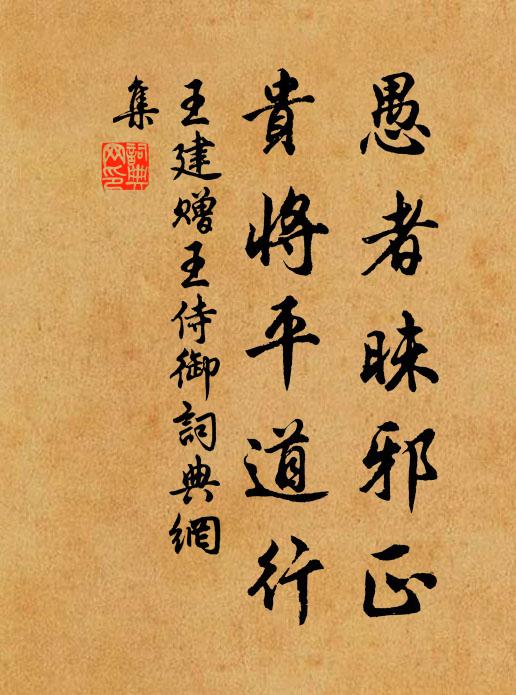 愚者昧邪正
貴將平道行
王建赠王侍御詞典網
集
詞典網印